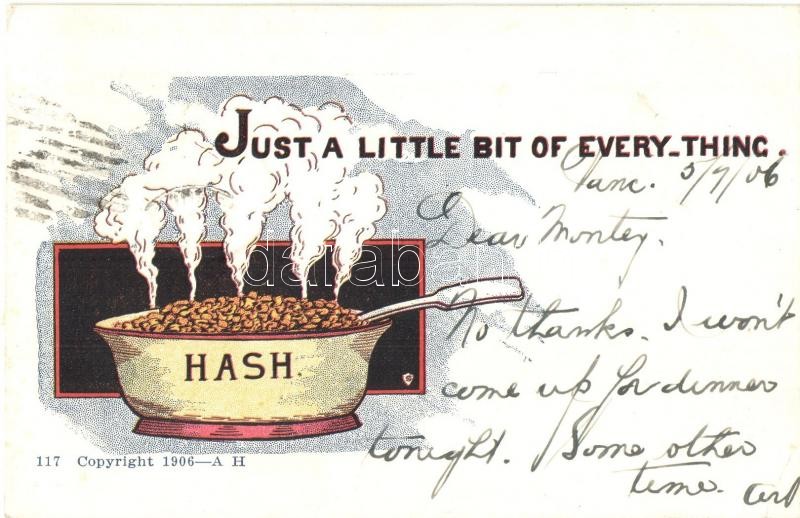 JUST A LITTLE BIT OF EVERY-THING.
Vanc. 5/7/06
Dear Montey.
No thanks. I won't
come up for dinner
tonight. Some other
time. Art
HASH.
117 Copyright 1906—A H
darabanth